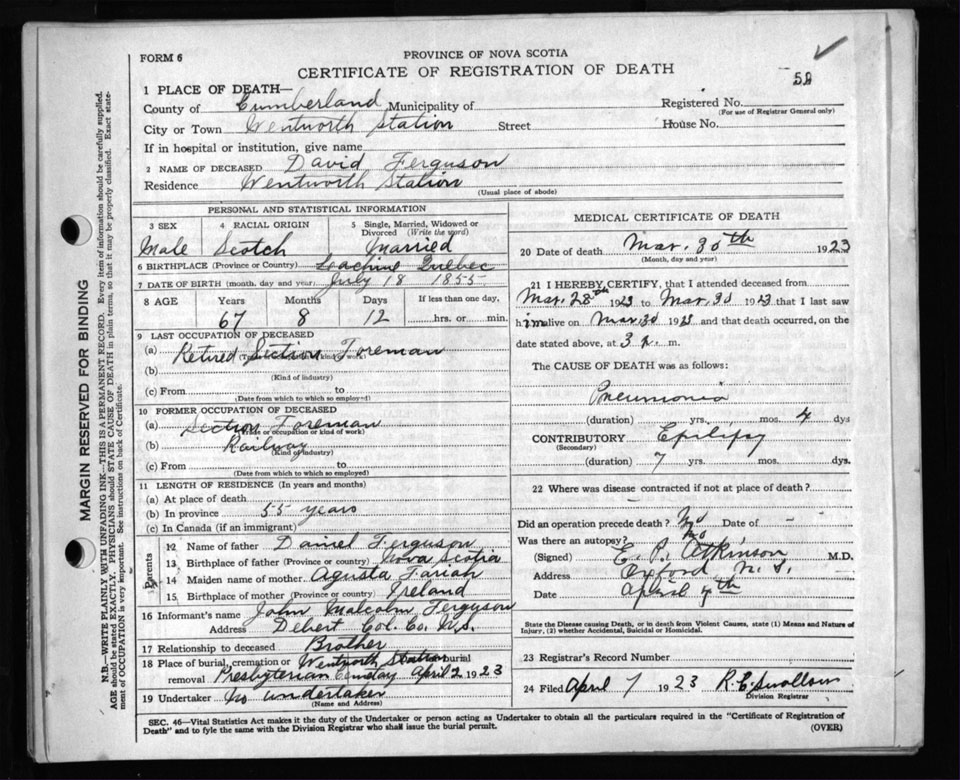 FORM 6
PROVINCE OF NOVA SCOTIA
CERTIFICATE OF REGISTRATION OF DEATH
59
1 PLACE OF DEATH—
County of Cumberland Municipality of
Registered No.
(For use of Registrar General only)
City or Town Wentworth Station Street House No.
If in hospital or institution, give name
2 NAME OF DECEASED David Ferguson
Residence Wentworth Station
(Usual place of abode)
PERSONAL AND STATISTICAL INFORMATION
3 SEX 4 RACIAL ORIGIN 5 Single, Married, Widowed or Divorced (Write the word)
Male Scotch Married
6 BIRTHPLACE (Province or Country) Lachine Quebec
7 DATE OF BIRTH (month, day and year) July 18 1855
8 AGE Years Months Days If less than one day,
67 8 12 hrs. or min.
9 LAST OCCUPATION OF DECEASED
(a) Retired Section Foreman
(Trade or occupation or kind of work)
(b)
(Kind of industry)
(c) From to
(Date from which to which so employed)
10 FORMER OCCUPATION OF DECEASED
(a) Section Foreman
(Trade or occupation or kind of work)
(b) Railway
(Kind of industry)
(c) From to
(Date from which to which so employed)
11 LENGTH OF RESIDENCE (In years and months)
(a) At place of death
(b) In province 55 years
(c) In Canada (if an immigrant)
Parents
12 Name of father Daniel Ferguson
13 Birthplace of father (Province or country) Nova Scotia
14 Maiden name of mother Agusta
15 Birthplace of mother (Province or country) Ireland
16 Informant's name John Malcolm Ferguson
Address Debert Col. Co. N.S.
17 Relationship to deceased Brother
18 Place of burial, cremation or Wentworth Station burial
removal Presbyterian April 2 1923
19 Undertaker No undertaker
(Name and Address)
MEDICAL CERTIFICATE OF DEATH
20 Date of death Mar. 30th 1923
(Month, day and year)
21 I HEREBY CERTIFY, that I attended deceased from
Mar. 28th 1923 to Mar. 30 1923 that I last saw
him alive on Mar. 30 1923 and that death occurred, on the
date stated above, at 3 m.
The CAUSE OF DEATH was as follows:
Pneumonia
(duration) yrs. mos. 4 dys
CONTRIBUTORY Epilipsy
(Secondary)
(duration) 7 yrs. mos. dys.
22 Where was disease contracted if not at place of death?
Did an operation precede death? No Date of -
Was there an autopsy? No
(Signed) E. P. Atkinson M.D.
Address Oxford N.S.
Date April 7th
State the Disease causing Death, or in death from Violent Causes, state (1) Means and Nature of
Injury, (2) whether Accidental, Suicidal or Homicidal.
23 Registrar's Record Number
24 Filed April 7 1923 R. E. Swallow
Division Registrar
SEC. 46—Vital Statistics Act makes it the duty of the Undertaker or person acting as Undertaker to obtain all the particulars required in the "Certificate of Registration of
Death" and to fyle the same with the Division Registrar who shall issue the burial permit.
(OVER)
MARGIN RESERVED FOR BINDING
N.B.—WRITE PLAINLY WITH UNFADING INK—THIS IS A PERMANENT RECORD. Every item of information should be carefully supplied.
AGE should be stated EXACTLY. PHYSICIANS should STATE CAUSE OF DEATH in plain terms, so that it may be properly classified. Exact statement of OCCUPATION is very important. See instructions on back of Certificate.